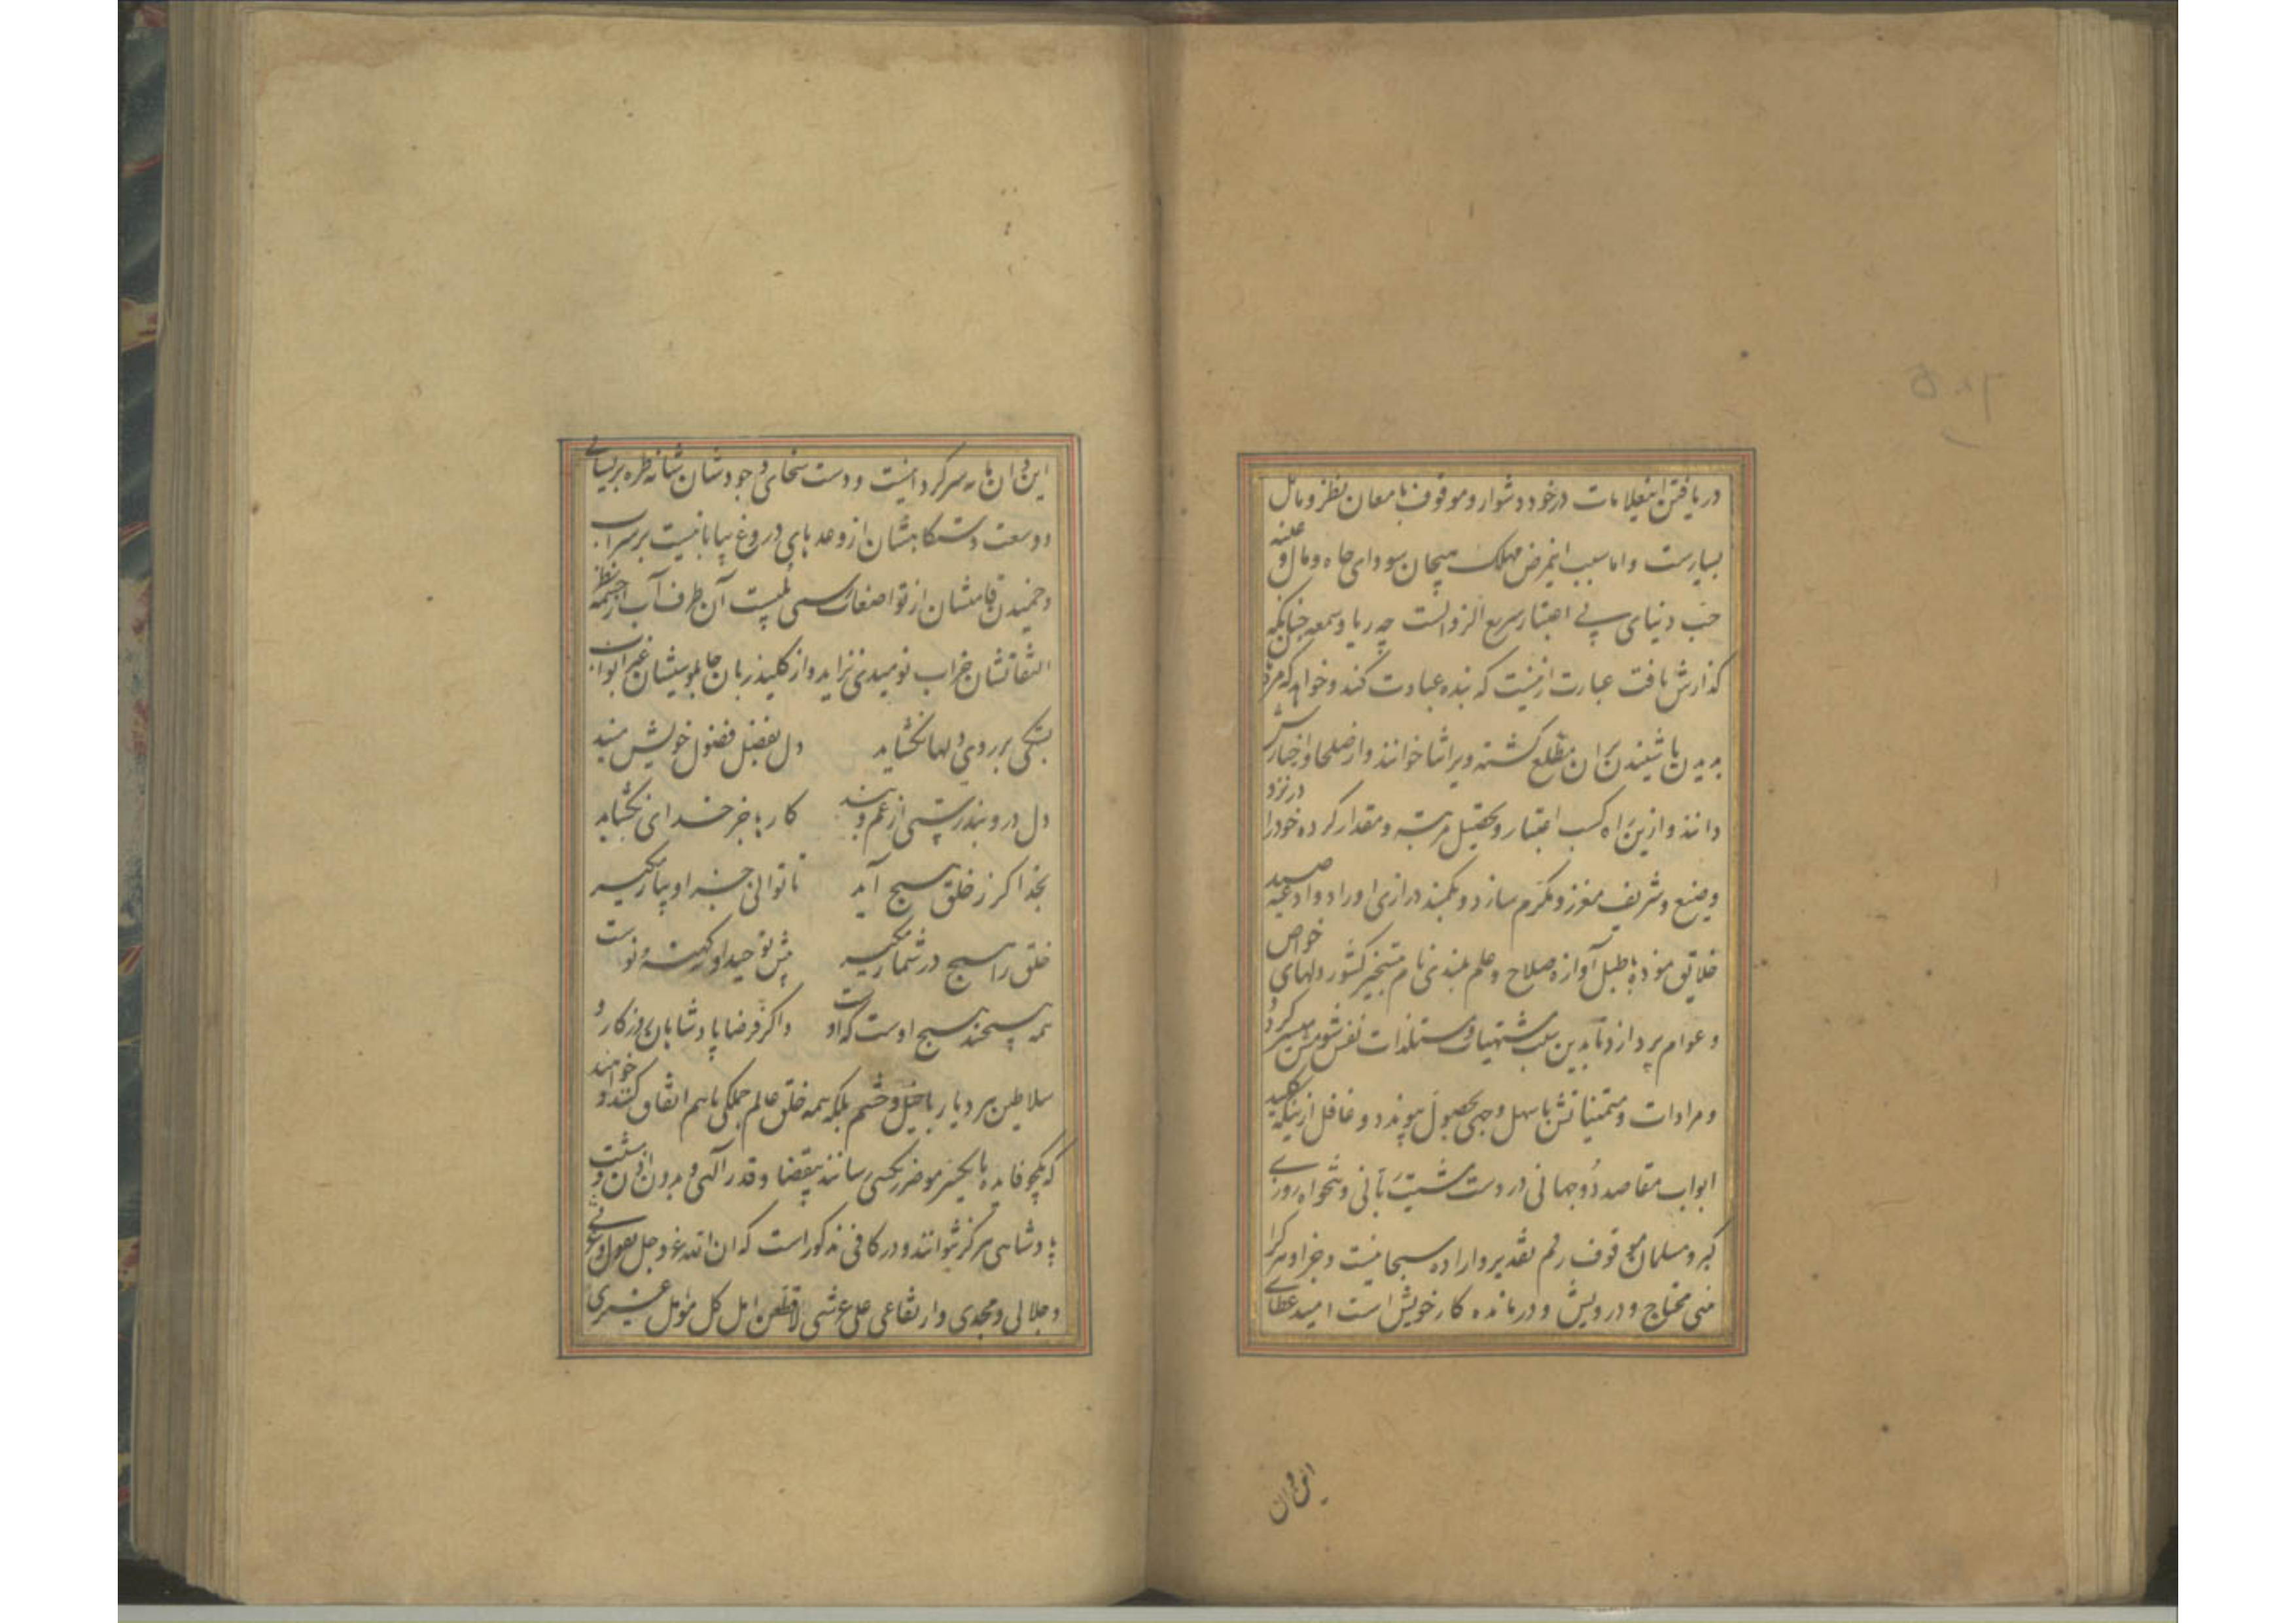 دریافتن اینعلامات درخود دشوار و موقوف بامعان نظر و تامل
بسیارست و اما سبب اینمرض مهلک هیجان سودای جاه و مال و غلبه
حب دنیای بی اعتبار سریع الزوالست چه ریا و سمعه چنانکه
گذارش یافت عبارت ازینست که بنده عبادت کند و خواهد که مردم
بدیدن یا شنیدن بران مطلع گشته ویرا ثنا خوانند و از صلحا و اخیارش
دانند و ازین راه کسب اعتبار و تحصیل مرتبه و مقدار کرده خود را در نزد
وضیع و شریف معزز و مکرم سازد و بکمند درازی اوراد و ادعیه صید
خلایق نموده با طبل آوازه صلاح و علم بلندی نام بتسخیر کشور دلهای خواص
و عوام پردازد تا بدین سبب مشتهیات و مستلذات نفس شومش میسر گردد
و مرادات و متمنیاتش باسهل وجهی بحصول پیوندد و غافل ازینکه کلید
ابواب مقاصد دوجهانی در دست مشیت ربانی و تنخواه روزی
گبر و مسلمان موقوف رقم تقدیر و اراده سبحانیست و جز او هر کرا
بینی محتاج و درویش و درمانده کار خویش است امید عطای
این و آن
این و ان مایه سرگردانیست و دست سخای وجودشان شانه طره پریشانی
و وسعت دستگاهشان از وعدهای دروغ بیابانیست پر سراب
و خمیدن قامتشان از تواضعات رسمی پلیست آن طرف آب از چشمه نظر
التفاتشان جز آب نومیدی نزاید و از کلید زبان چاپلوسیشان غیر ابواب
بستگی بر روی دلها نگشاید دل بفضل فضول خویش مبند
دل درو بند رستی از غم و بند کارها جز خدای نگشاید
بخدا گر ز خلق هیچ آید تا توانی جز او بیار مگیر
خلق را هیچ در شمار مگیر پیش توحید او نه کهنه نه نوست
همه هیچند هیچ اوست که اوست و اگر فرضا پادشاهان روزگار و
سلاطین هر دیار با خیل و حشم بلکه همه خلق عالم جملگی باهم اتفاق کنند و خواهند
که یکجو فایده یا یکسر مو ضرر بکسی رسانند بیقضا و قدر آلهی و بدون اذن و مشیت
پادشاهی هرگز نتوانند و در کافی مذکور است که ان الله عز و جل یقول و عزتی
و جلالی و مجدی و ارتفاعی علی عرشی لاقطعن امل کل مؤمل غیری